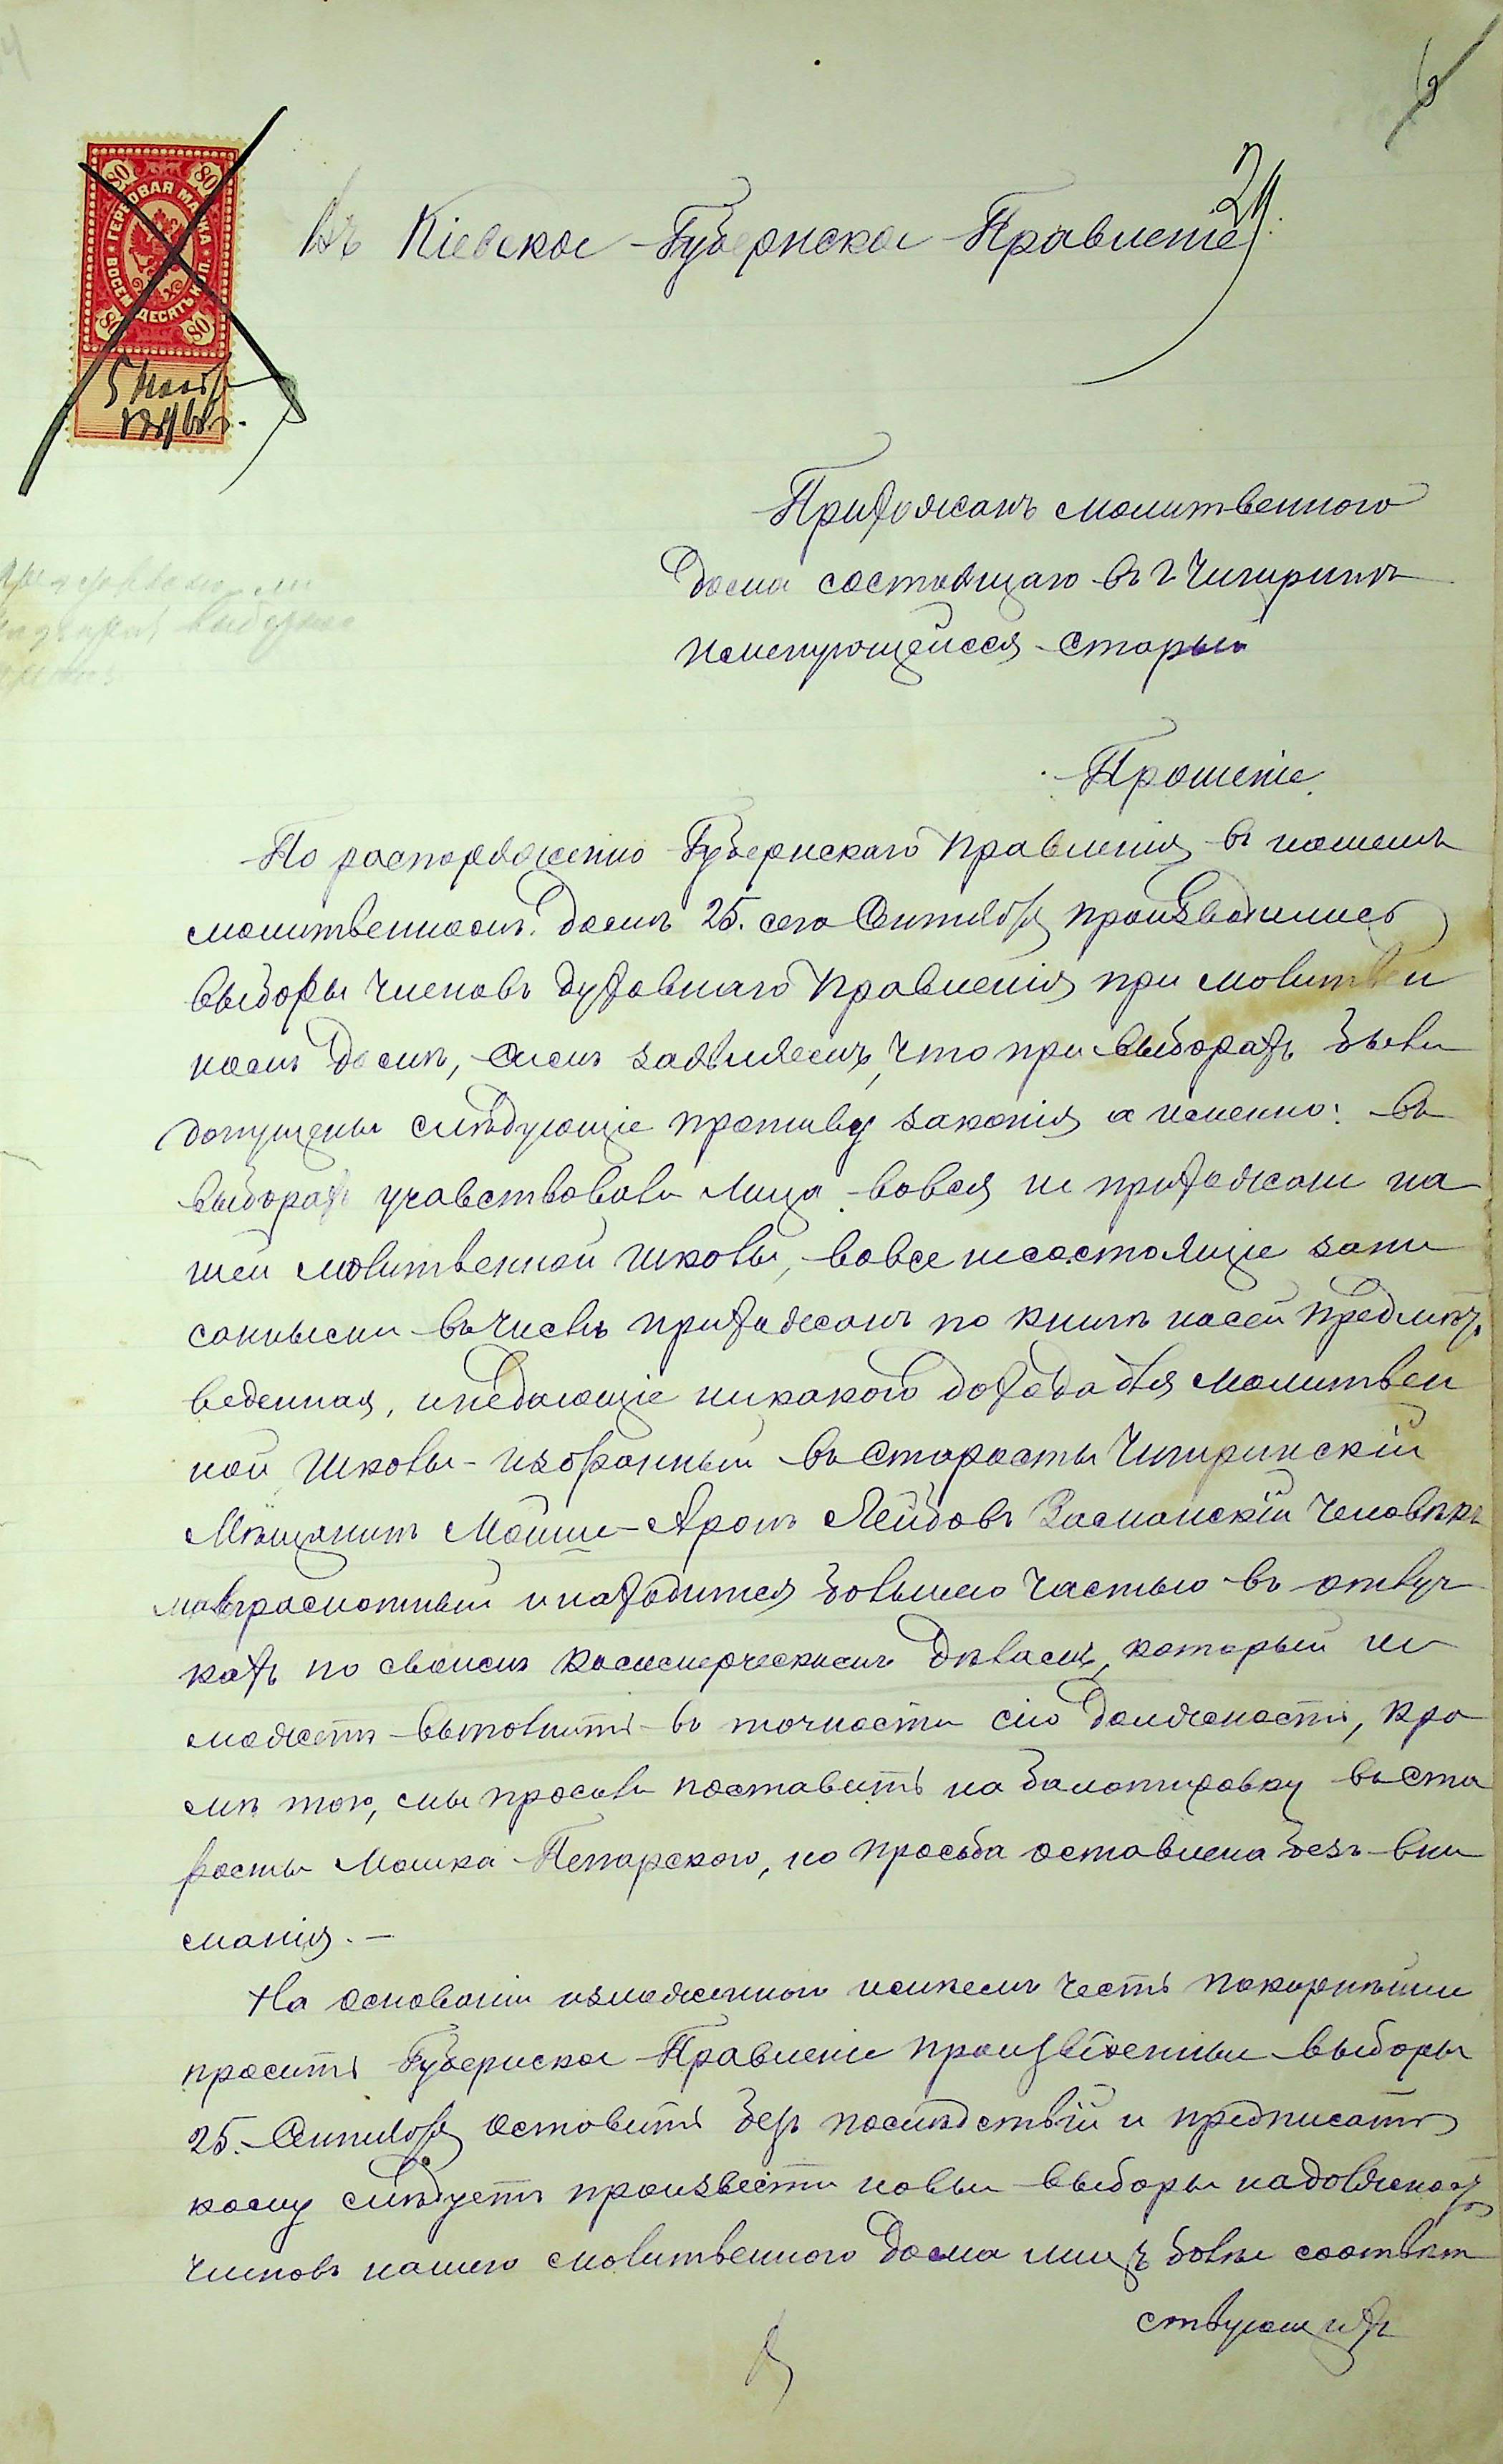 24.
Въ Кіевское Губернское Правленіе
ГЕРБОВАЯ МАРКА
ВОСЕМДЕСЯТЪ КОП.
80 80 80 80
5 Нояб
Прихожанъ молитвенного
дома состоящаго въ г Чигиринѣ
именующейся Старый
Прошеніе.
По распоряженію Губернскаго Правленія въ нашемъ
молитвенномъ домѣ 25. сего Сентября производились
выборы членовъ духовнаго правленія при молитвен
номъ домѣ, симъ заявляемъ, что при выборахъ были
допущены слѣдующіе противу законія а именно: въ
выборахъ учавствовали лица вовся не прихожани на
шей молитвенной школы, вовсе несостоящіе запи
санными въ числѣ прихожанъ по книгѣ на сей предмѣтъ
веденная, и недающіе никакого дохода для молитвен
ной школы - избранный въ старосты Чигиринскій
Мѣщанинъ Мойше-Аронъ Лейбовъ Засланскій человѣкъ
малграмотный и находится большею частью въ отлуч
кахъ по своимъ коммерческимъ дѣламъ, который не
можетъ выполнить въ точности сію должность, кро
мѣ того, мы просили поставить на балотировку въ ста
росты Мошка Петарского, но просьба оставлена безъ вни
манія. —
На основаніи изложенного имѣемъ честь покорнѣйше
просить Губернское Правленіе произведенные выборы
25. Сентября оставить безъ послѣдствій и предписать
кому слѣдуетъ произвести новые выборы на должность
членовъ нашего молитвенного дома лицъ болѣе соотвѣт
ствующихъ